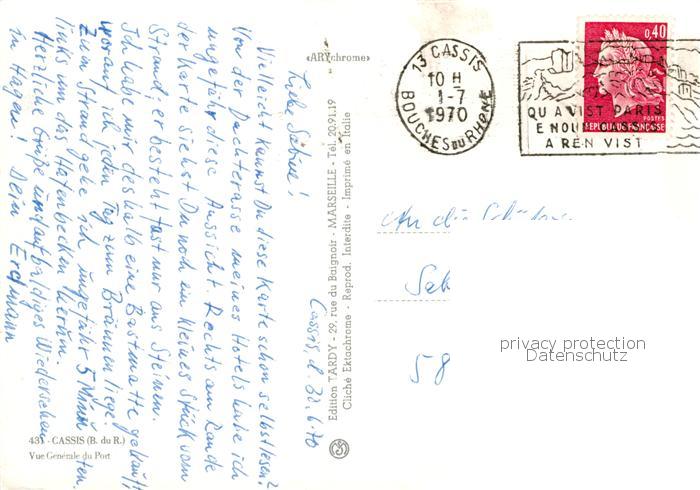 «ARYchrome»
13 CASSIS
10 H
1-7
1970
BOUCHES DU RHONE
0,40
POSTES
REPUBLIQUE FRANÇAISE
QU A VIST PARIS
E NOUN CASSIS
A REN VIST
Cassis, d. 30.6.70
Liebe Sabine!
Vielleicht kannst Du diese Karte schon selbst lesen?
Von der Dachterasse meines Hotels habe ich
ungefähr diese Aussicht. Rechts am Rande
der Karte siehst Du noch ein kleines Stück vom
Strand; er besteht fast nur aus Steinen.
Ich habe mir deshalb eine Bastmatte gekauft
worauf ich jeden Tag zum Bräunen liege.
Zum Strand gehe ich ungefähr 5 Minuten
links um das Hafenbecken herum.
Herzliche Grüße und auf baldiges Wiedersehen
in Hagen! Dein Erdmann
Edition TARDY - 29, rue du Baignoir - MARSEILLE - Tél. 20.91.19
Cliché Ektachrome - Reprod. Interdite - Imprimé en Italie
431 - CASSIS (B. du R.)
Vue Générale du Port
An die
Sab
58
privacy protection
Datenschutz